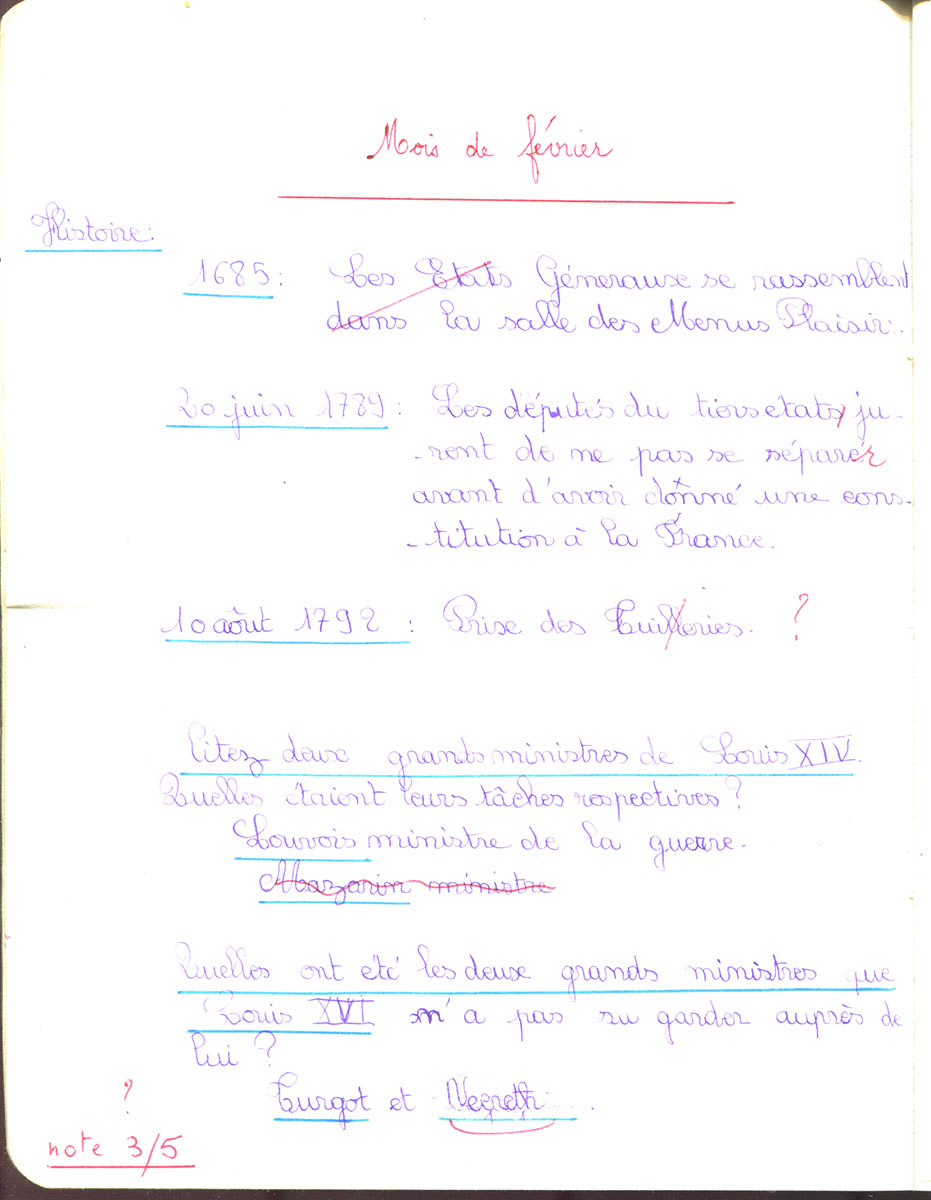 Mois de février
Histoire:
1685: Les Etats Génerause se rassemblent
dans la salle des Menus Plaisir.
20 juin 1789: Les députés du tiers etats ju-
-rent de ne pas se séparér
avant d'avoir donné une cons-
-titution à la France.
10 aôut 1792: Prise des Tuilleries. ?
Citez deux grands ministres de Louis XIV.
Quelles étaient leurs tâches respectives?
Louvois ministre de la guerre.
Mazarin ministre
Quelles ont eté les deux grands ministres que
Louis XVI n'a pas su garder auprès de
lui?
Turgot et
?
note 3/5